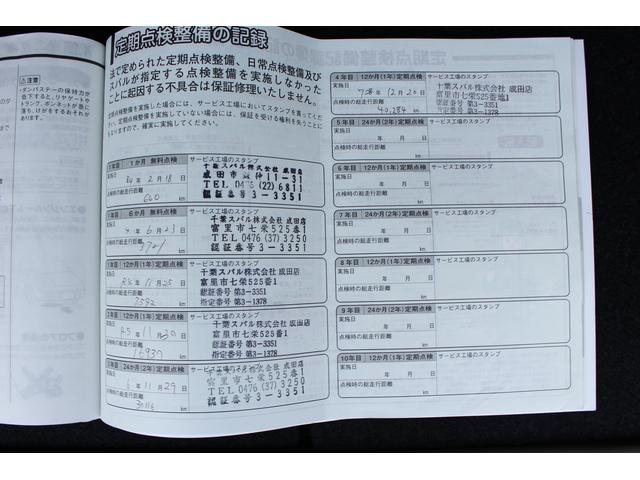 注意
・ダンパステーの保持力が
低下すると、リヤゲートや
トランク、ボンネットが急に
落ち、けがをするおそれが
あります。
定期点検整備の記録
法で定められた定期点検整備、日常点検整備及び
スバルが指定する点検整備を実施しなかった
ことに起因する不具合は保証修理いたしません。
定期点検整備を実施した場合には、サービス工場においてスタンプを貰ってください。
定期点検整備を実施していない場合には、保証を受ける権利を失うことに
なりますので、確実に実施してください。
1か月 無料点検
サービス工場のスタンプ
実施日
R4年 2月 18日
点検時の総走行距離
660 km
成田市 11-31
TEL 0476 (22) 6811
認証番号 3-3351
6か月 無料点検
サービス工場のスタンプ
実施日
4年 6月 23日
点検時の総走行距離
km
千葉スバル株式会社 成田店
富里市七栄525番1
TEL 0476 (37) 3250
認証番号3-3351
1年目 12か月(1年)定期点検
サービス工場のスタンプ
実施日
R4年 11月 25日
点検時の総走行距離
7592 km
千葉スバル株式会社 成田店
富里市七栄525番1
認証番号 第3-3351
指定番号 第3-1378
2年目 12か月(1年)定期点検
サービス工場のスタンプ
実施日
R5年 11月 30日
点検時の総走行距離
16937 km
千葉スバル株式会社 成田店
富里市七栄525番1
認証番号 第3-3351
指定番号 第3-1378
3年目 24か月(2年)定期点検
サービス工場のスタンプ
実施日
6年 11月 29日
点検時の総走行距離
30116 km
千葉スバル株式会社 成田店
富里市七栄525番1
TEL 0476 (37) 3250
認証番号 3-3351
4年目 12か月(1年)定期点検
サービス工場のスタンプ
実施日
7年 12月 20日
点検時の総走行距離
40,284 km
千葉スバル株式会社 成田店
富里市七栄525番地1
認証番号 第3-3351
指定番号 第3-1378
5年目 24か月(2年)定期点検
サービス工場のスタンプ
実施日
年 月 日
点検時の総走行距離
km
6年目 12か月(1年)定期点検
サービス工場のスタンプ
実施日
年 月 日
点検時の総走行距離
km
7年目 24か月(2年)定期点検
サービス工場のスタンプ
実施日
年 月 日
点検時の総走行距離
km
8年目 12か月(1年)定期点検
サービス工場のスタンプ
実施日
年 月 日
点検時の総走行距離
km
9年目 24か月(2年)定期点検
サービス工場のスタンプ
実施日
年 月 日
点検時の総走行距離
km
10年目 12か月(1年)定期点検
サービス工場のスタンプ
実施日
年 月 日
点検時の総走行距離
km